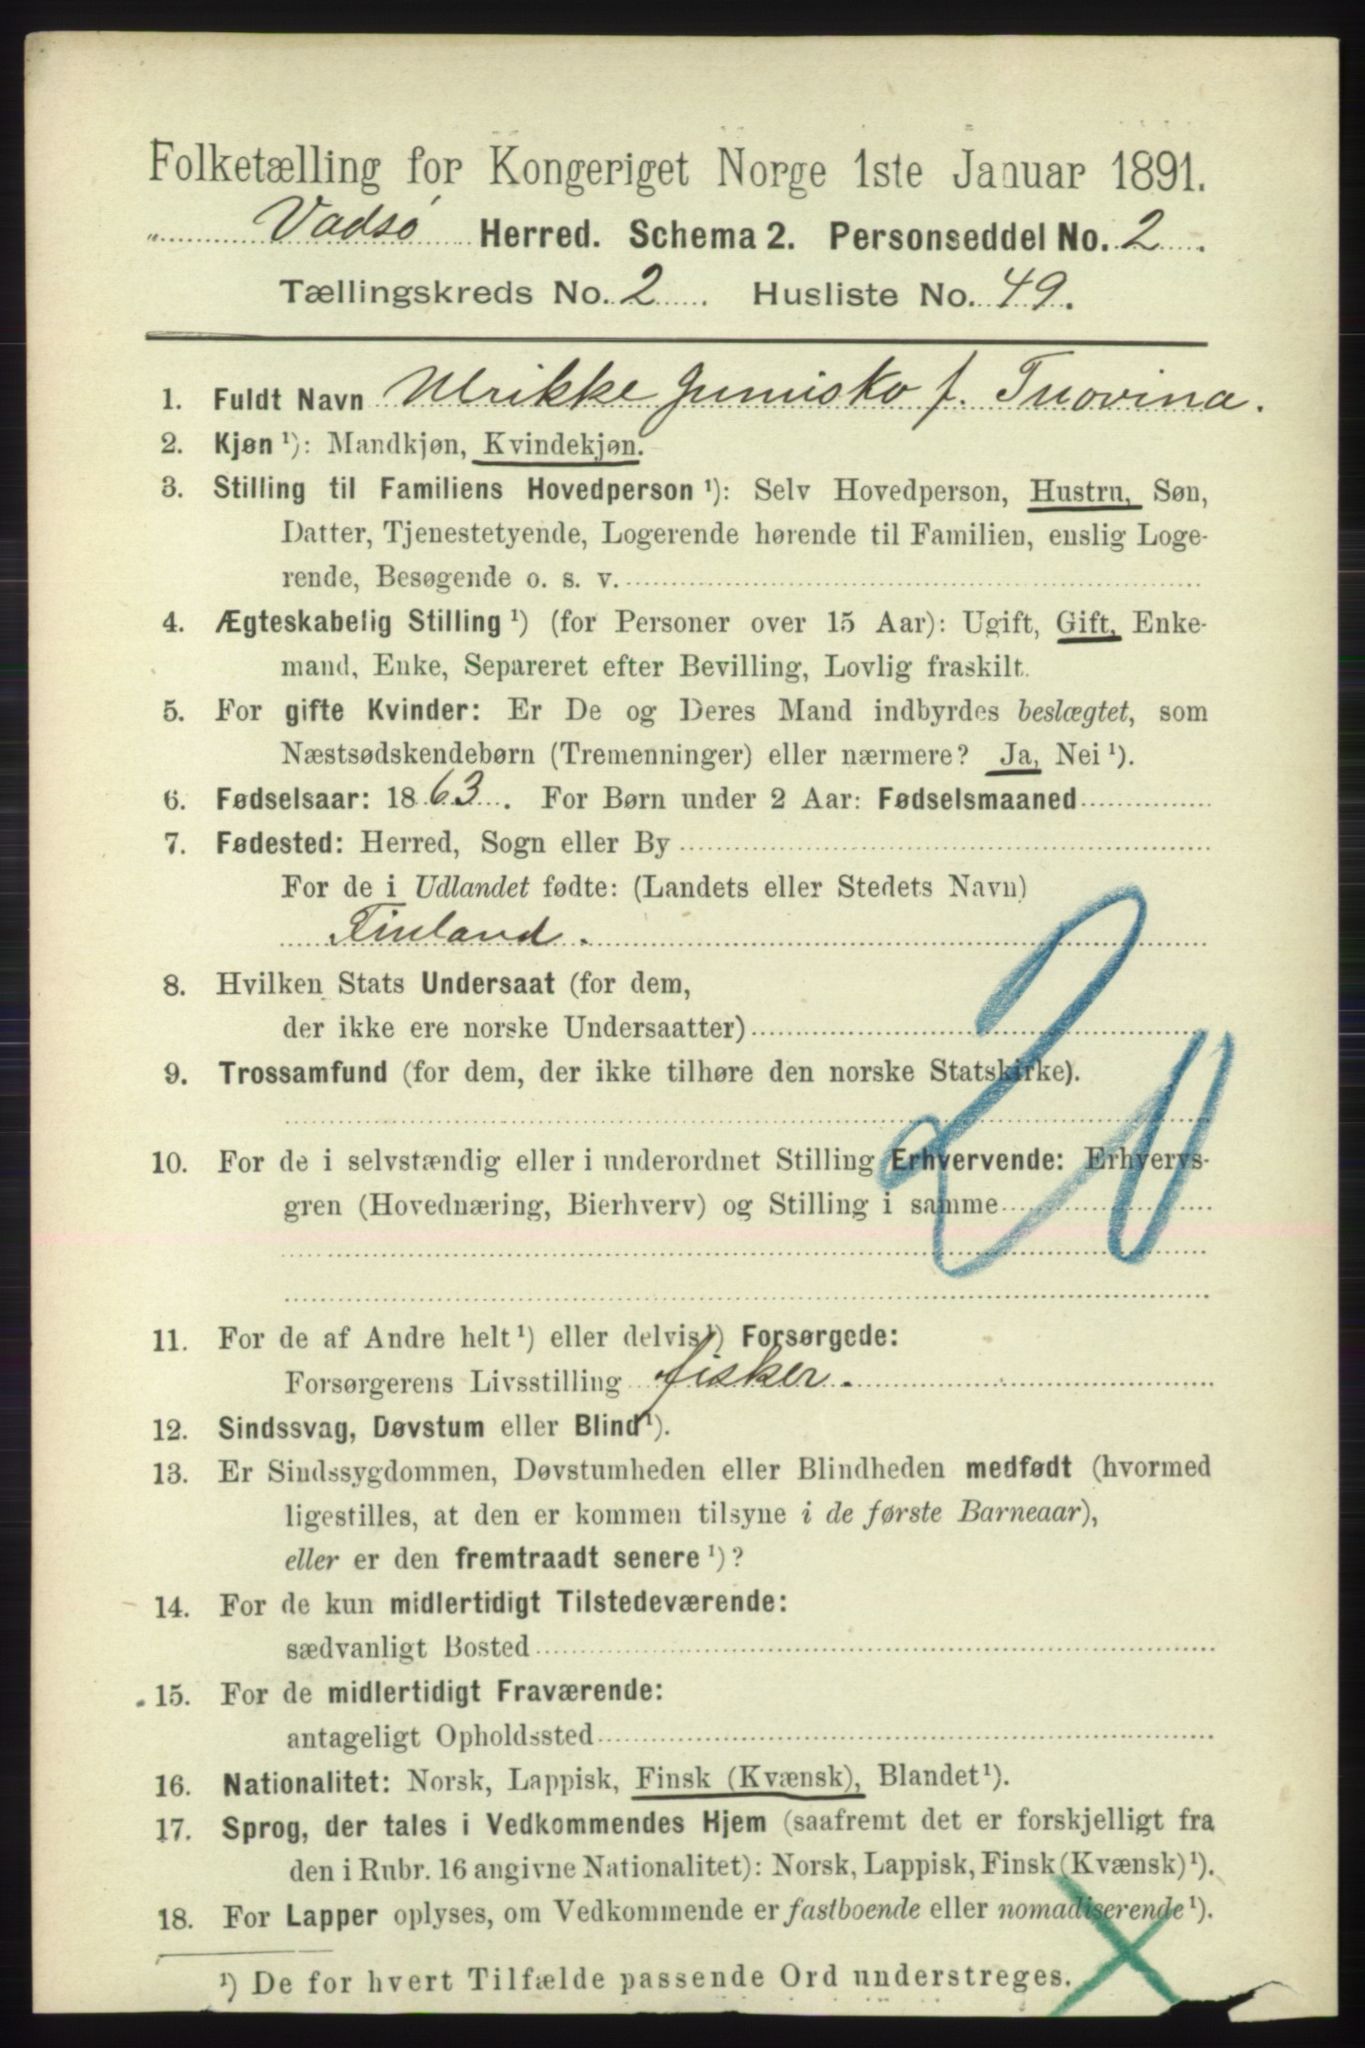 Folketælling for Kongeriget Norge 1ste Januar 1891.
Vadsø Herred. Schema 2. Personseddel No. 2.
Tællingskreds No. 2. Husliste No. 49.
1. Fuldt Navn Ulrikke Junisko f. Tuovina.
2. Kjøn ¹): Mandkjøn, Kvindekjøn.
3. Stilling til Familiens Hovedperson ¹): Selv Hovedperson, Hustru, Søn,
Datter, Tjenestetyende, Logerende hørende til Familien, enslig Loge-
rende, Besøgende o. s. v.
4. Ægteskabelig Stilling ¹) (for Personer over 15 Aar): Ugift, Gift, Enke-
mand, Enke, Separeret efter Bevilling, Lovlig fraskilt.
5. For gifte Kvinder: Er De og Deres Mand indbyrdes beslægtet, som
Næstsødskendebørn (Tremenninger) eller nærmere? Ja, Nei ¹).
6. Fødselsaar: 1863. For Børn under 2 Aar: Fødselsmaaned
7. Fødested: Herred, Sogn eller By
For de i Udlandet fødte: (Landets eller Stedets Navn)
Finland.
8. Hvilken Stats Undersaat (for dem,
der ikke ere norske Undersaatter)
9. Trossamfund (for dem, der ikke tilhøre den norske Statskirke).
20
10. For de i selvstændig eller i underordnet Stilling Erhvervende: Erhvervs-
gren (Hovednæring, Bierhverv) og Stilling i samme
11. For de af Andre helt ¹) eller delvis ¹) Forsørgede:
Forsørgerens Livsstilling fisker.
12. Sindssvag, Døvstum eller Blind ¹).
13. Er Sindssygdommen, Døvstumheden eller Blindheden medfødt (hvormed
ligestilles, at den er kommen tilsyne i de første Barneaar),
eller er den fremtraadt senere ¹)?
14. For de kun midlertidigt Tilstedeværende:
sædvanligt Bosted
15. For de midlertidigt Fraværende:
antageligt Opholdssted
16. Nationalitet: Norsk, Lappisk, Finsk (Kvænsk), Blandet ¹).
17. Sprog, der tales i Vedkommendes Hjem (saafremt det er forskjelligt fra
den i Rubr. 16 angivne Nationalitet): Norsk, Lappisk, Finsk (Kvænsk) ¹).
18. For Lapper oplyses, om Vedkommende er fastboende eller nomadiserende ¹).
¹) De for hvert Tilfælde passende Ord understreges.